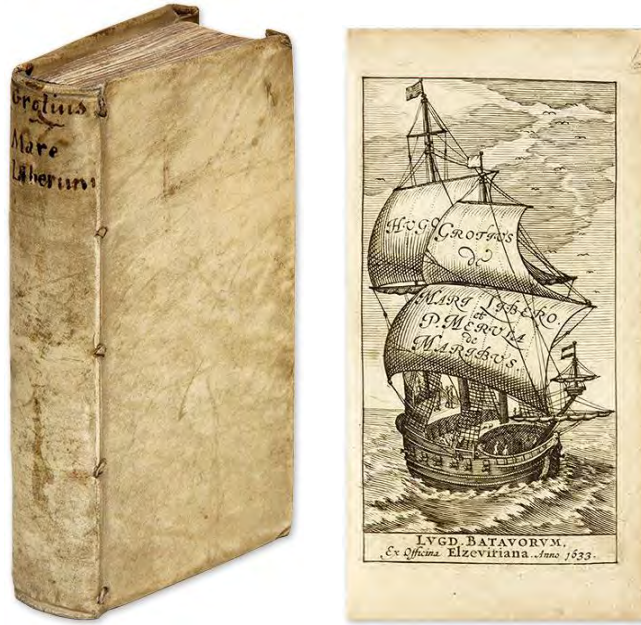 Grotius
Mare
Liberum
HUGO GROTIVS
de
MARI LIBERO
et
P. MERVLA
de
MARIBVS.
LVGD. BATAVORVM,
Ex Officina Elzeviriana. Anno 1633.